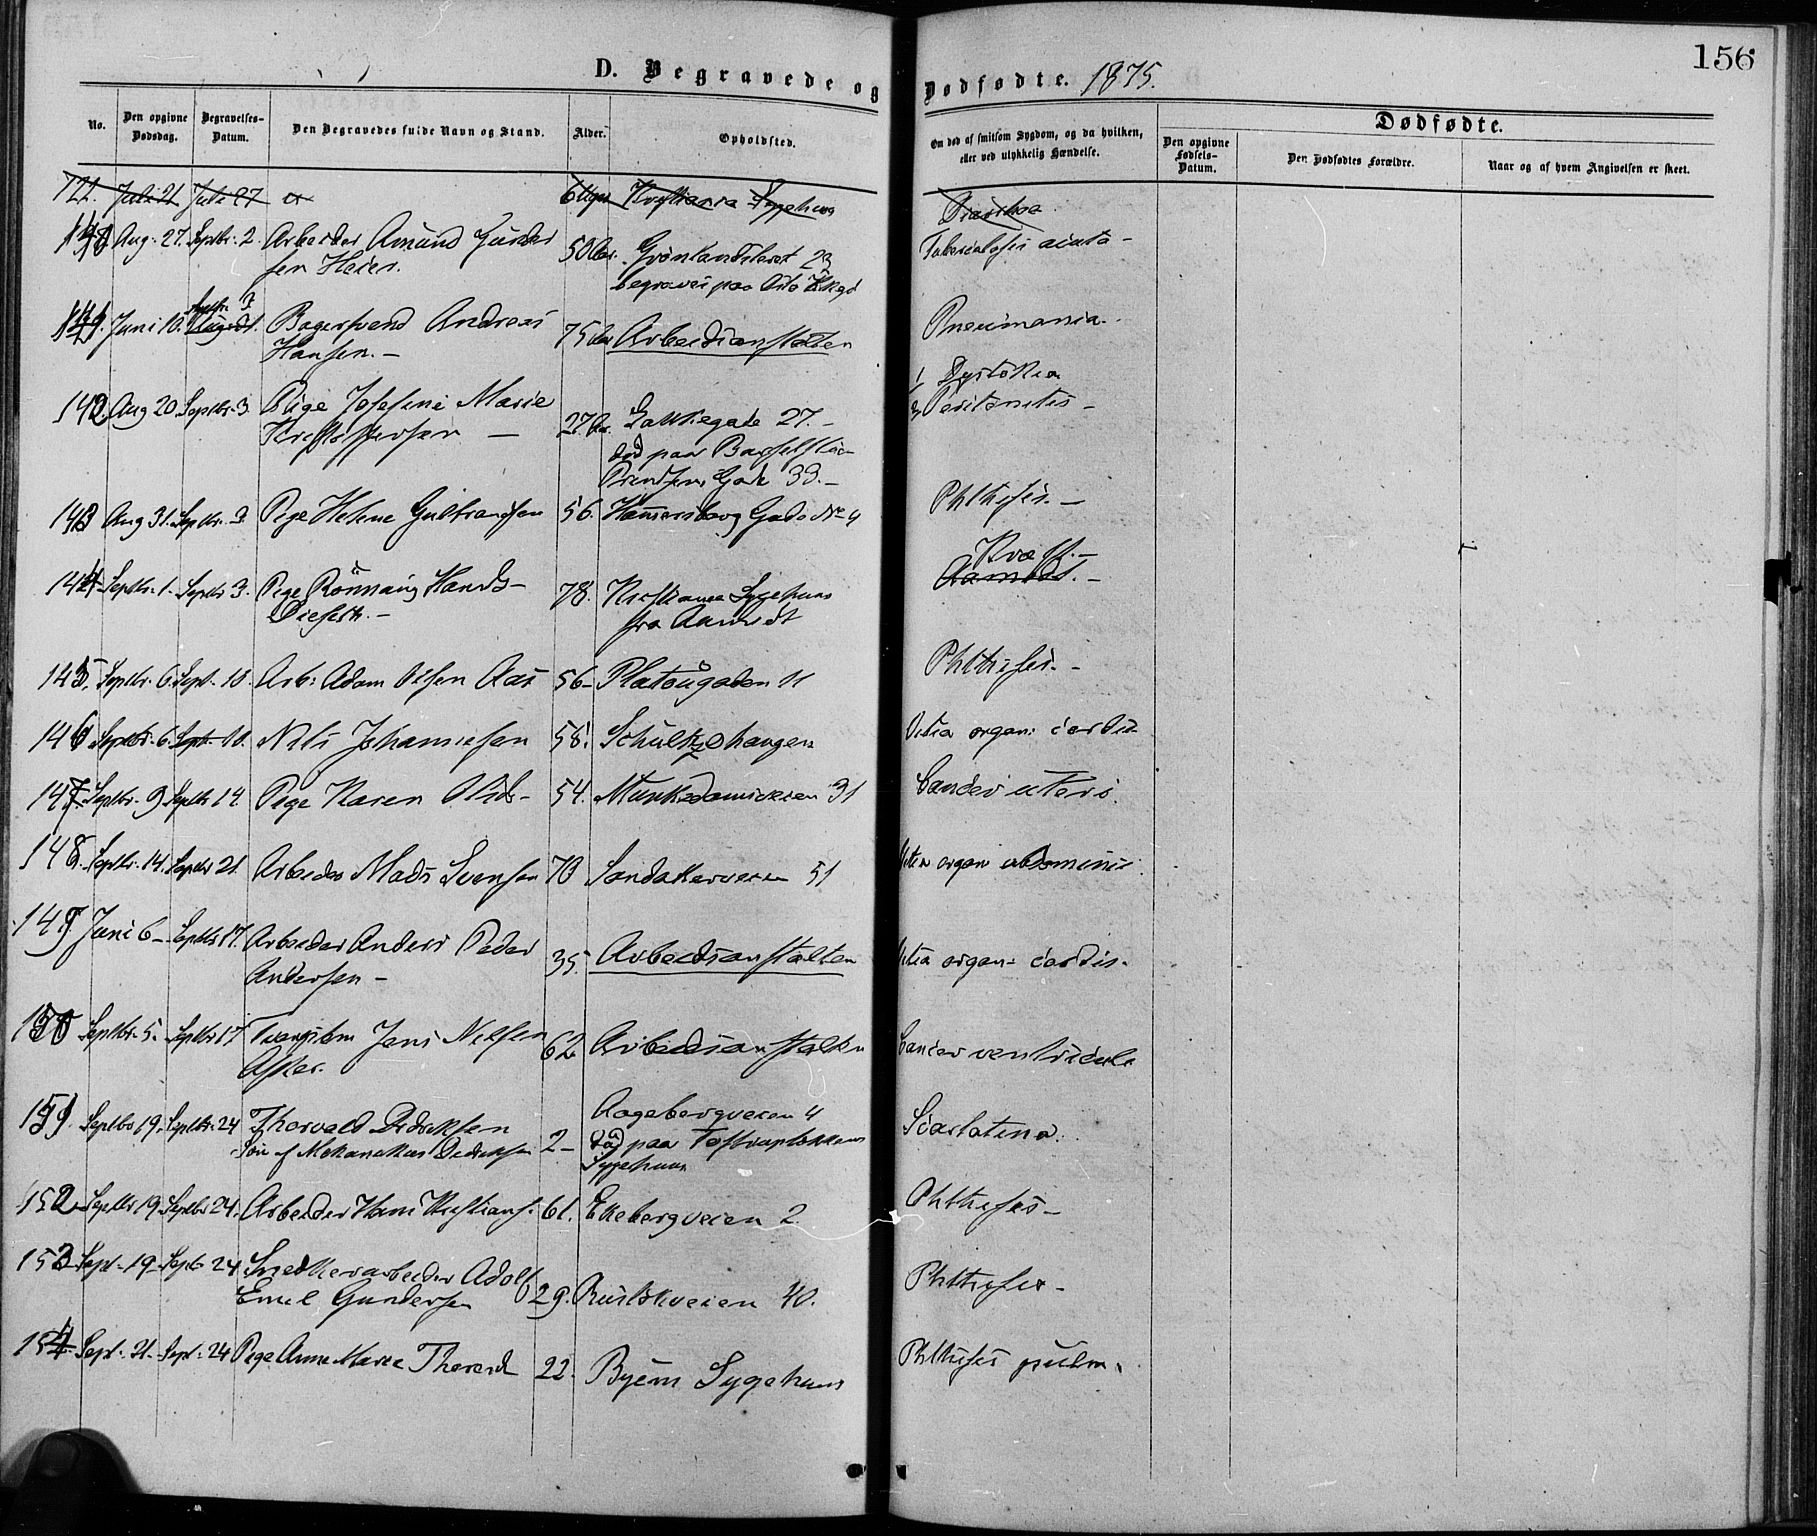 156
D. Begravede og Dødfødte. 1875.
No. Den opgivne Dødsdag. Begravelses-Datum. Den Begravedes fulde Navn og Stand. Alder. Opholdsted. Om død af smitsom Sygdom, og da hvilken, eller ved ulykkelig Hændelse.
Dødfødte.
Den opgivne Fødsels-Datum. Den Dødfødtes Forældre. Naar og af hvem Angivelsen er skeet.
121. Juli 21 Juli 27 Kristiania Sygehus
Aug. 27. Septbr. 2. Arbeider Amund Gunder 50 Aar. Grønlandsleret 23 Tuberculosis acuta -
sen Heier. begraves paa
141. Juni 10. Septbr. 3 Bagersvend Andreas 75 Aar Arbeidsanstalten Pneumonia.
Hansen. -
142. Aug 20 Septbr. 3. Pige Josefine Marie 27 Aar. Lakkegade 27. - 1 Dystokia
Kristoffersen - død paa Barselstif Peritonitis -
Gade 33. -
143 Aug 31. Septbr. 3. Pige Helene Gulbrandsen 56. Hammersborg Gade No 4 Phthisis. -
144 Septbr. 1. Septbr 3. Pige Rönnaug Hands- 78. Kristiania Sygehuus Kræft. -
Datter. - fra Aamodt Aamodt. -
145. Septbr. 6. Sept. 10. Arb: Adam Olsen Aas 56 - Platöugaden 11 Phthisis. -
146 Septbr. 6. Sept. 10. Nils Johannesen 58. Schultzehaugen Vitia organ: cordis
147. Septbr. 9 Septbr 14. Pige Karen Olsd - 54. Munkedamsveien 31 Cancer uteri.
148. Septbr. 14. Septbr 21. Arbeider Mads Svensen 70 Sandakerveien 51 Vitia organ abdominis
149 Juni 6 - Septbr 17. Arbeider Anders Peder 35. Arbeidsanstalten Vitia organ: cordis.
Andersen -
150 Septbr. 5. Septbr 17 Jens Nilsen 62 Arbeidsanstalten Cancer ventriculi
Asker.
151. Septbr 19. Septbr. 24 Thorvald Didriksen 2 - Aagebergveien 4 Scarlatina.
Søn af Mekanikus Didriksen død paa Toftrupløkkens
Sygehuus
152 Septbr 19. Septbr 24. Arbeider Hans Kristians. 61. Ekebergveien 2. Phthisis -
153 Sept. 19 - Septb 24 Snedkerarbeider Adolf 29. Phthisis -
Emil Gundersen 40.
154 Sept. 21 - Sept. 24 Pige Anne Marie Thoresd 22. Byens Sygehuus Phthisis pulm.